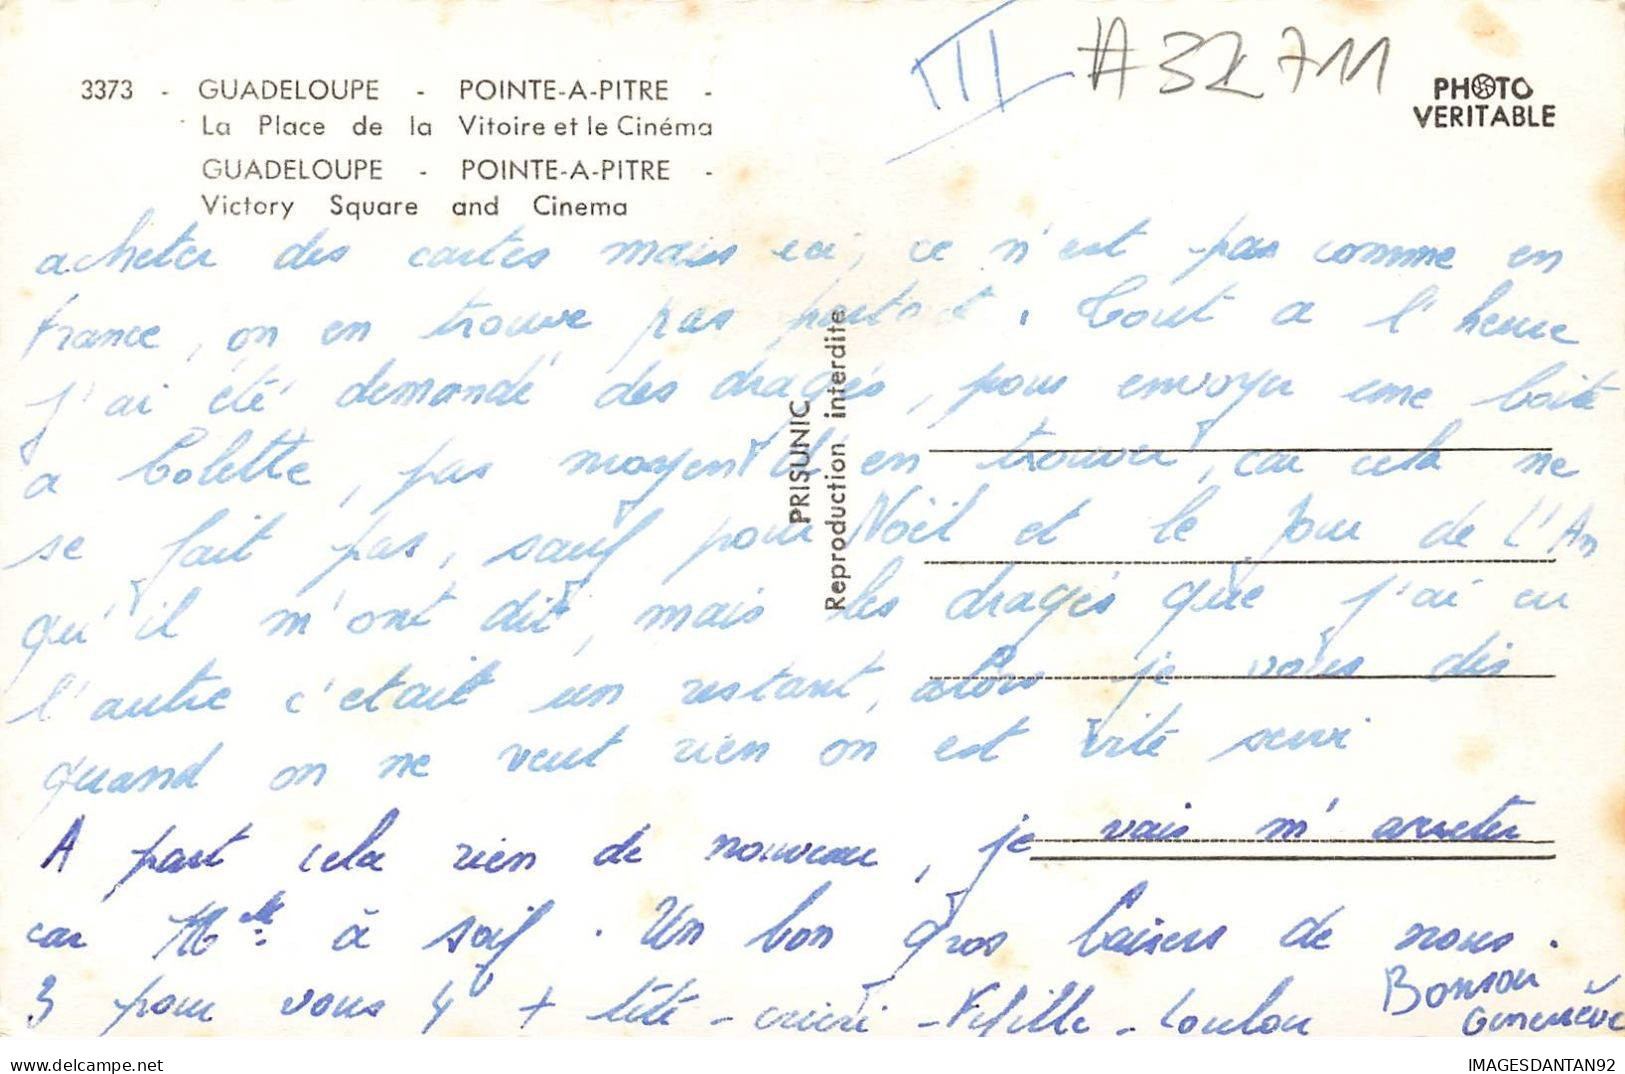 III #32711
PHOTO
VERITABLE
3373 - GUADELOUPE - POINTE-A-PITRE -
La Place de la Vitoire et le Cinéma
GUADELOUPE - POINTE-A-PITRE -
Victory Square and Cinema
acheter des cartes mais ici, ce n'est pas comme en
france, on en trouve pas partout. Tout a l'heure
j'ai été demandé des dragés, pour envoyer une boite
a Colette, pas moyen d'en trouver, car cela ne
se fait pas, sauf pour Noël et le jour de l'An
qu'il m'ont dit, mais les dragés que j'ai eu
l'autre c'etait un restant, alors je vous dis
quand on ne veut rien on est vite servi
A part cela rien de nouveau, je vais m'arreter
car Melle à soif. Un bon gros baisers de nous.
3 pour vous 4 + tété - - Fifille - Loulou
Bonsou
Geneviève
PRISUNIC
Reproduction interdite
IMAGESDANTAN92